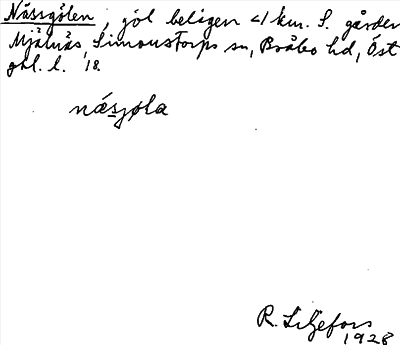 Nässgölen, göl belägen <1 km. S. gården
Mjälnäs Simonstorps sn, Bråbo hd, Öst
gtl. l. '18.
næsjøla
R. Liljefors
1928